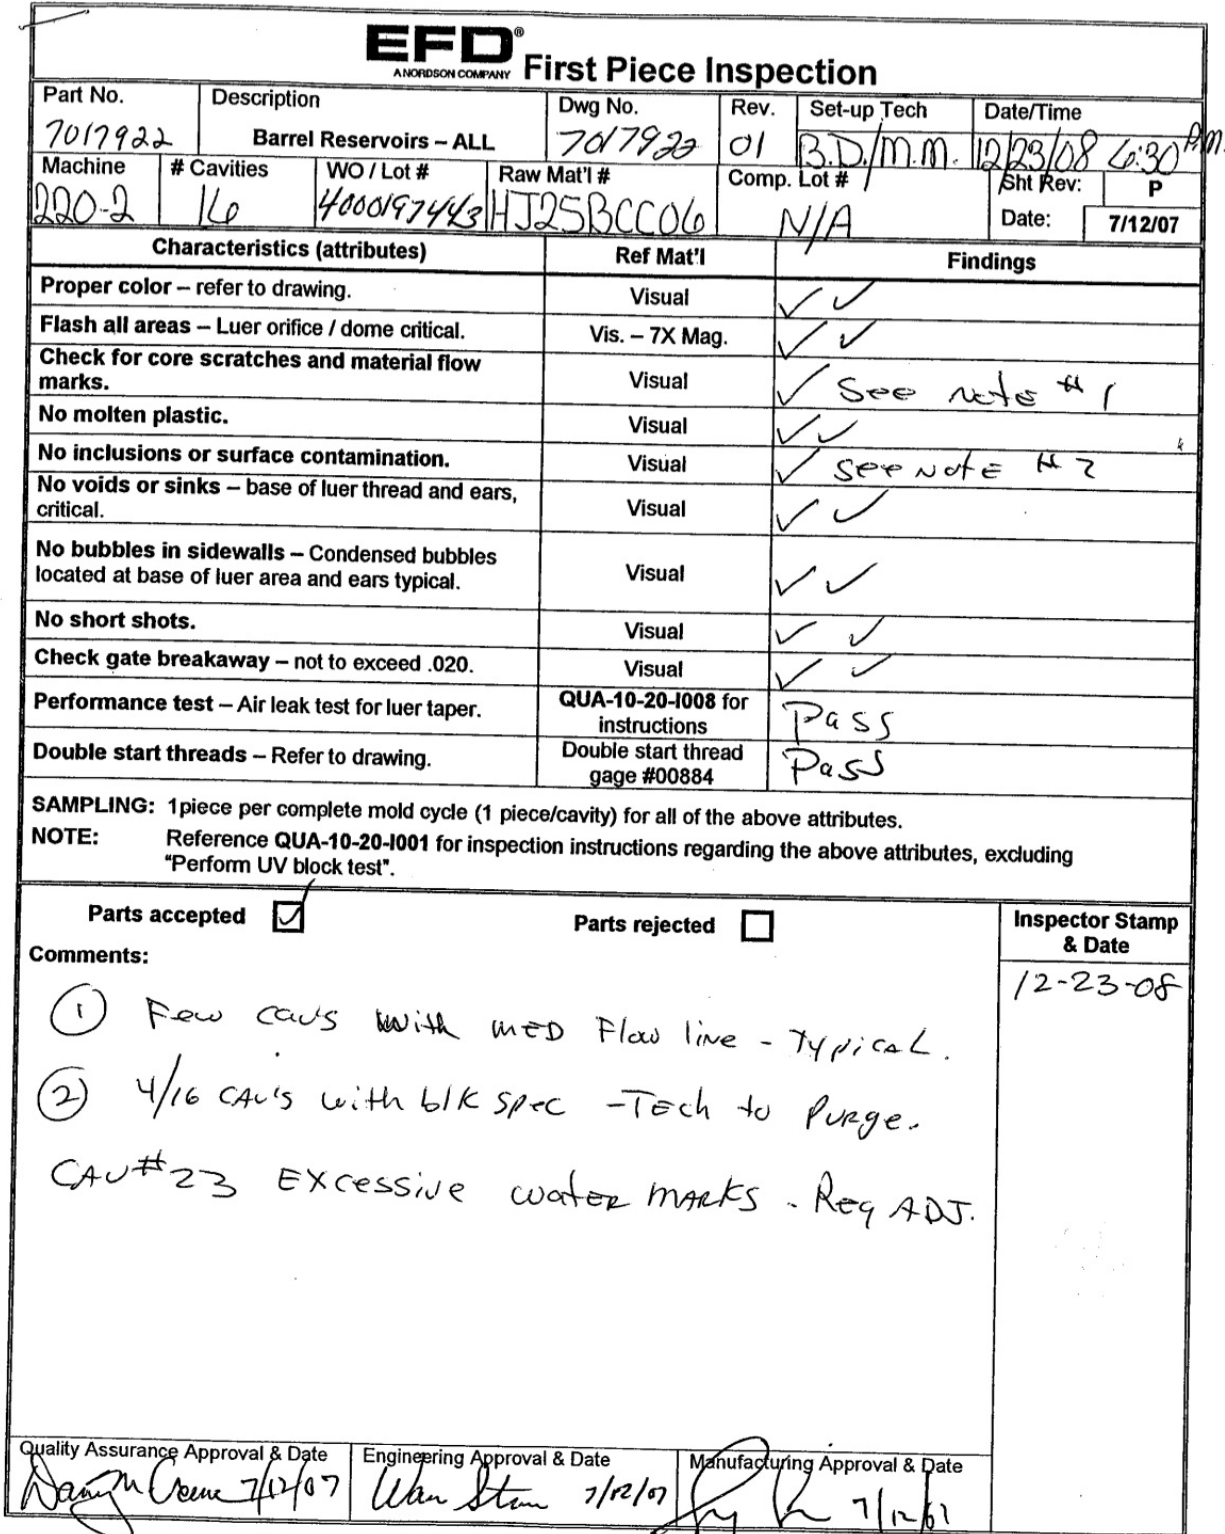 EFD®
A NORDSON COMPANY First Piece Inspection
Part No. Description Dwg No. Rev. Set-up Tech Date/Time
7017922 Barrel Reservoirs – ALL 7017922 01 B.D./M.M. 12/23/08 6:30 P.M.
Machine # Cavities WO / Lot # Raw Mat'l # Comp. Lot # Sht Rev: P
220-2 16 4000197443 HJ25BCC06 N/A Date: 7/12/07
Characteristics (attributes) Ref Mat'l Findings
Proper color – refer to drawing. Visual ✓ ✓
Flash all areas – Luer orifice / dome critical. Vis. – 7X Mag. ✓ ✓
Check for core scratches and material flow
marks. Visual ✓ See note # 1
No molten plastic. Visual ✓ ✓
No inclusions or surface contamination. Visual ✓ See Note # 2
No voids or sinks – base of luer thread and ears,
critical. Visual ✓ ✓
No bubbles in sidewalls – Condensed bubbles
located at base of luer area and ears typical. Visual ✓ ✓
No short shots. Visual ✓ ✓
Check gate breakaway – not to exceed .020. Visual ✓ ✓
Performance test – Air leak test for luer taper. QUA-10-20-I008 for
instructions Pass
Double start threads – Refer to drawing. Double start thread
gage #00884 Pass
SAMPLING: 1piece per complete mold cycle (1 piece/cavity) for all of the above attributes.
NOTE: Reference QUA-10-20-I001 for inspection instructions regarding the above attributes, excluding
"Perform UV block test".
Parts accepted ☑ Parts rejected ☐ Inspector Stamp
& Date
Comments:
12-23-08
① Few cav's with MED Flow line - Typical.
② 4/16 CAV's with blk spec - Tech to Purge.
CAV#23 Excessive water marks - Req ADJ.
Quality Assurance Approval & Date Engineering Approval & Date Manufacturing Approval & Date
7/12/07 7/12/07 7/12/07